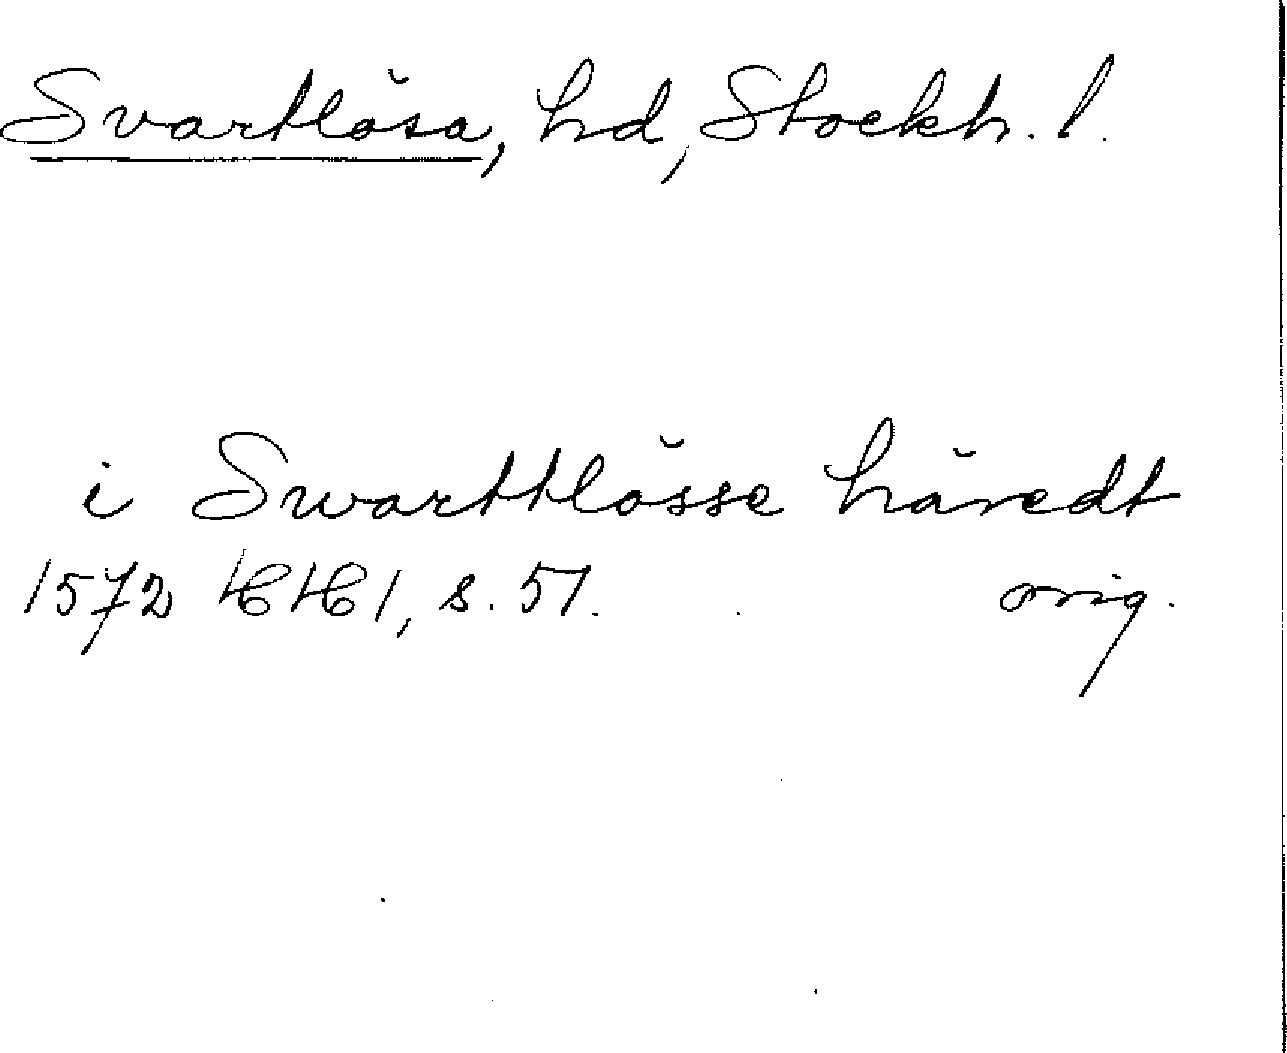 Svartlösa, hd, Stockh. l.
i Swarttlösse häredt
1572 HH 1, s. 51. orig.